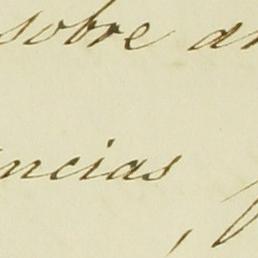 sobre an
ncias